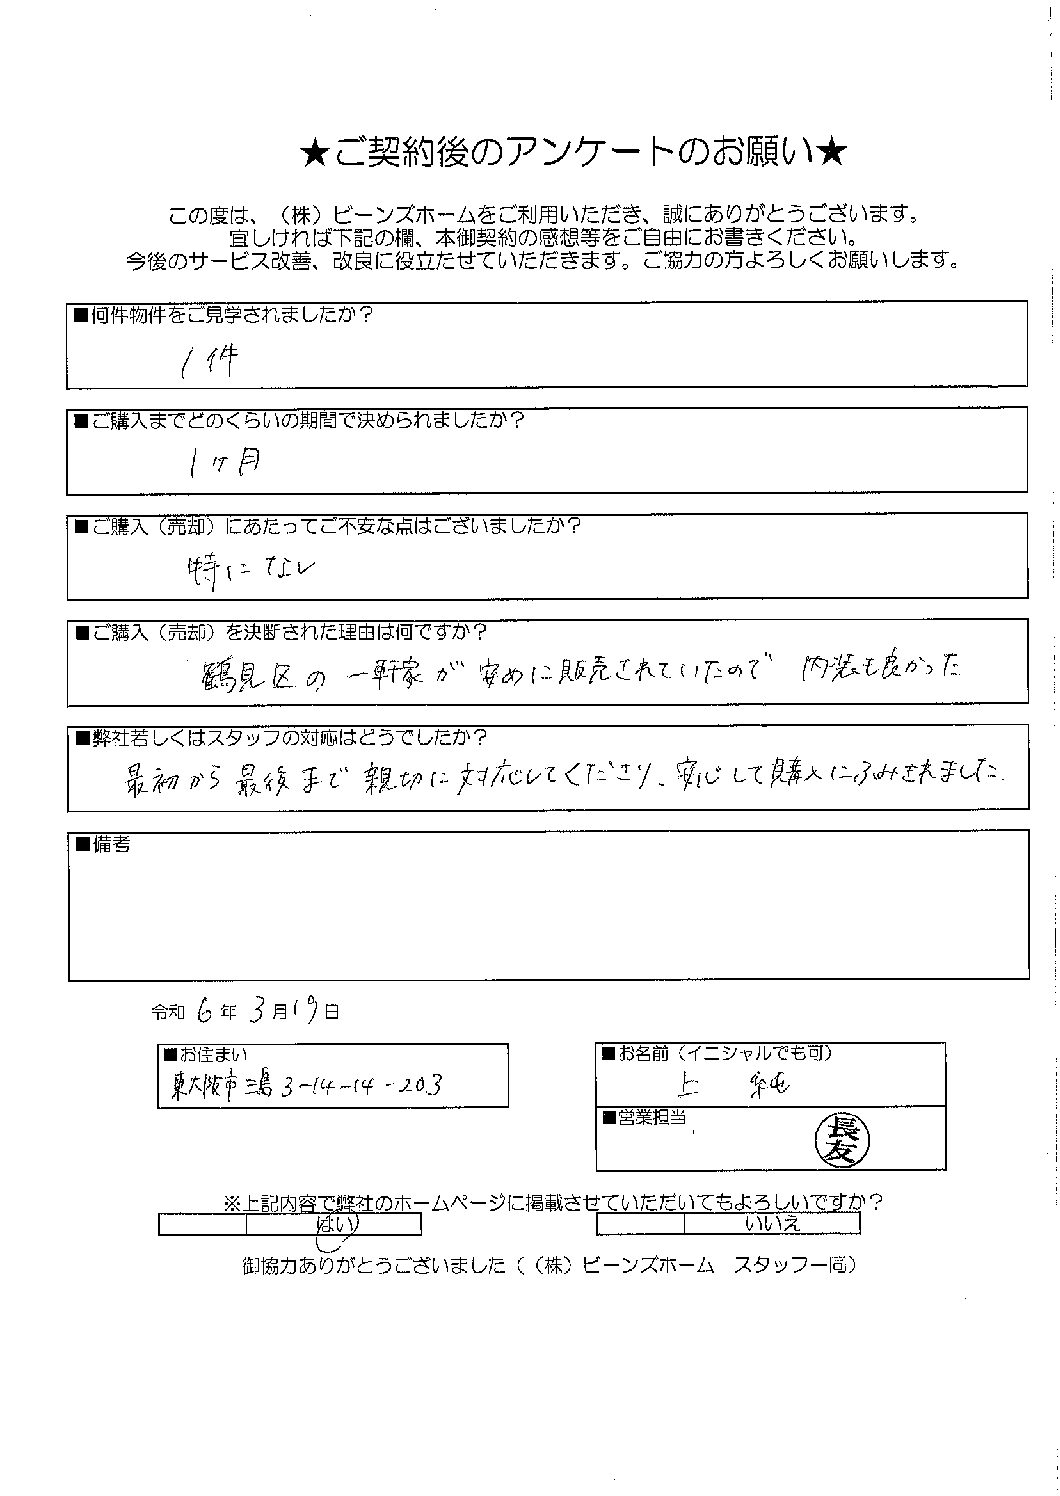 ★ご契約後のアンケートのお願い★
この度は、（株）ビーンズホームをご利用いただき、誠にありがとうございます。
宜しければ下記の欄、本御契約の感想等をご自由にお書きください。
今後のサービス改善、改良に役立たせていただきます。ご協力の方よろしくお願いします。
■何件物件をご見学されましたか？
1件
■ご購入までどのくらいの期間で決められましたか？
1ヶ月
■ご購入（売却）にあたってご不安な点はございましたか？
特になし
■ご購入（売却）を決断された理由は何ですか？
鶴見区の一軒家が安めに販売されていたので 内装も良かった
■弊社若しくはスタッフの対応はどうでしたか？
最初から最後まで親切に対応してくださり、安心して購入にふみきれました。
■備考
令和 6年 3月19日
■お住まい
東大阪市三島3-14-14-203
■お名前（イニシャルでも可）
上
■営業担当
長友
※上記内容で弊社のホームページに掲載させていただいてもよろしいですか？
はい いいえ
御協力ありがとうございました（（株）ビーンズホーム スタッフ一同）